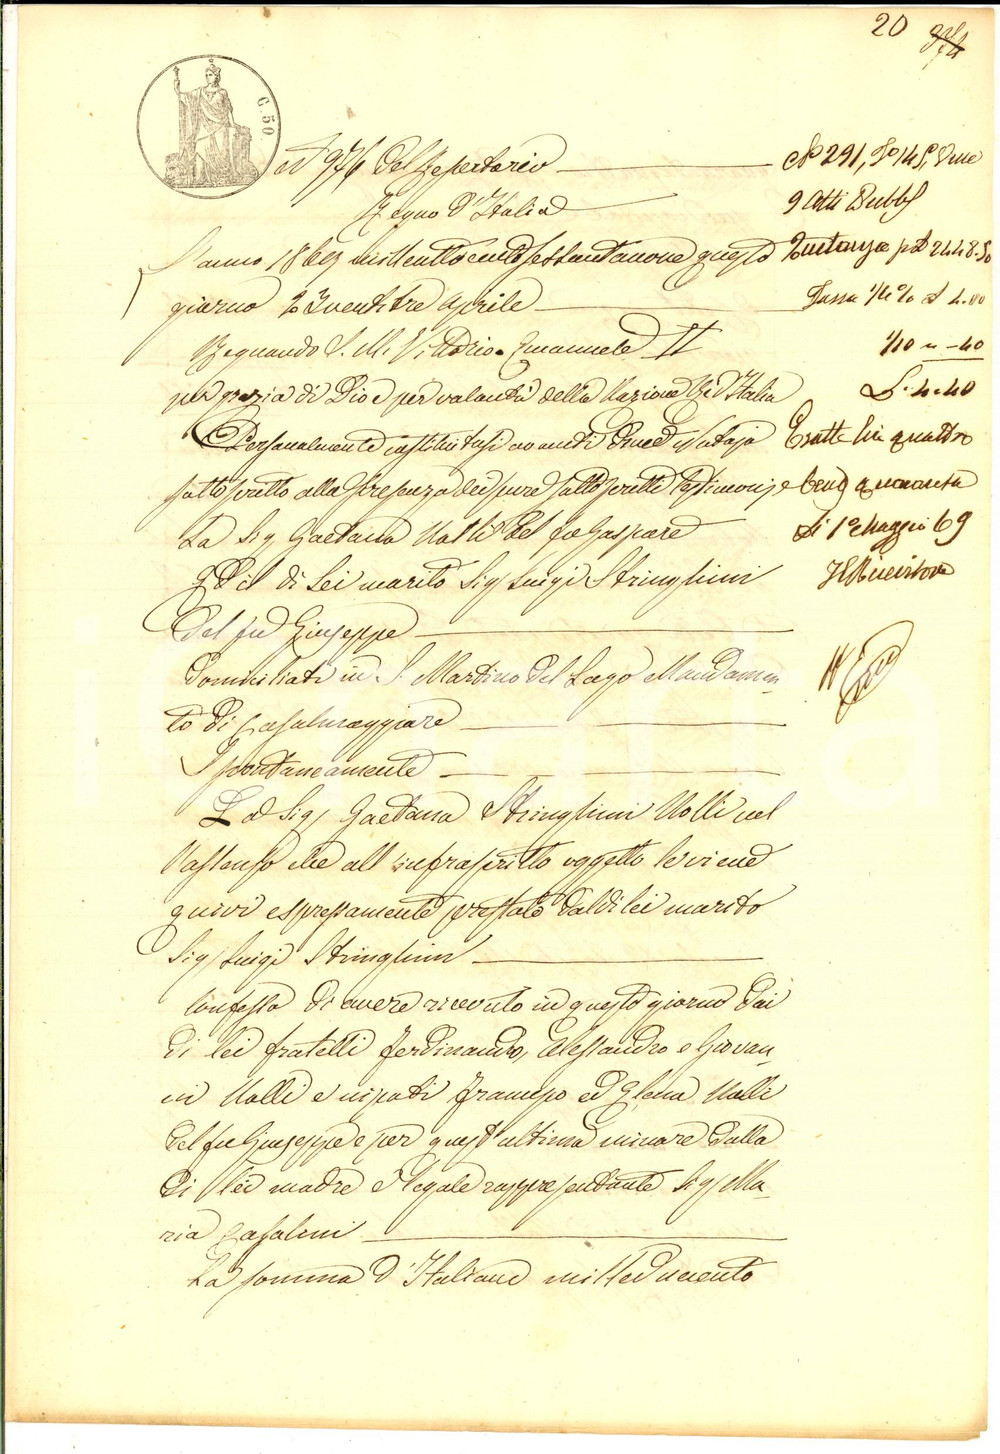 20
C. 50.
N 976 del Repertorio
Regno d'Italia
L'anno 1869 mille otto cento sessantanove questo
giorno 23 venti tre Aprile
Regnando S. M. Vittorio Emanuele II
per grazia di Dio e per volontà della Nazione Re d'Italia
Personalmente costituitasi avanti di me Notajo
sottoscritto alla presenza dei pure sottoscritti Testimonj
La Sig Gaetana Nolli del fu Gaspare
ed il di Lei marito Sig Luigi Stringhini
del fu Giuseppe
domiciliati in S. Martino del Lago Mandamen-
to di Casalmaggiore
Spontaneamente
La Sig Gaetana Stringhini Nolli col
l'assenso che all'infrascritto oggetto le viene
quivi espressamente prestato dal di lei marito
Sig Luigi Stringhini
Confessa di avere ricevuto in questo giorno dai
di lei fratelli Ferdinando, Alessandro e Giovan-
ni Nolli e nipoti ed Elena Nolli
del fu Giuseppe e per quest'ultima minore dalla
di lei madre e legale rappresentante Sig Ma-
ria Casalini
La somma d'Italiane mille duecento
N° 291,
9 Atti Pubbl
2448.50
Tassa L 4.00
1/10 " -40
L. 4.40
Esatte lire quattro
Cent quaranta
Li 1° Maggio 69
Il Ricevitore